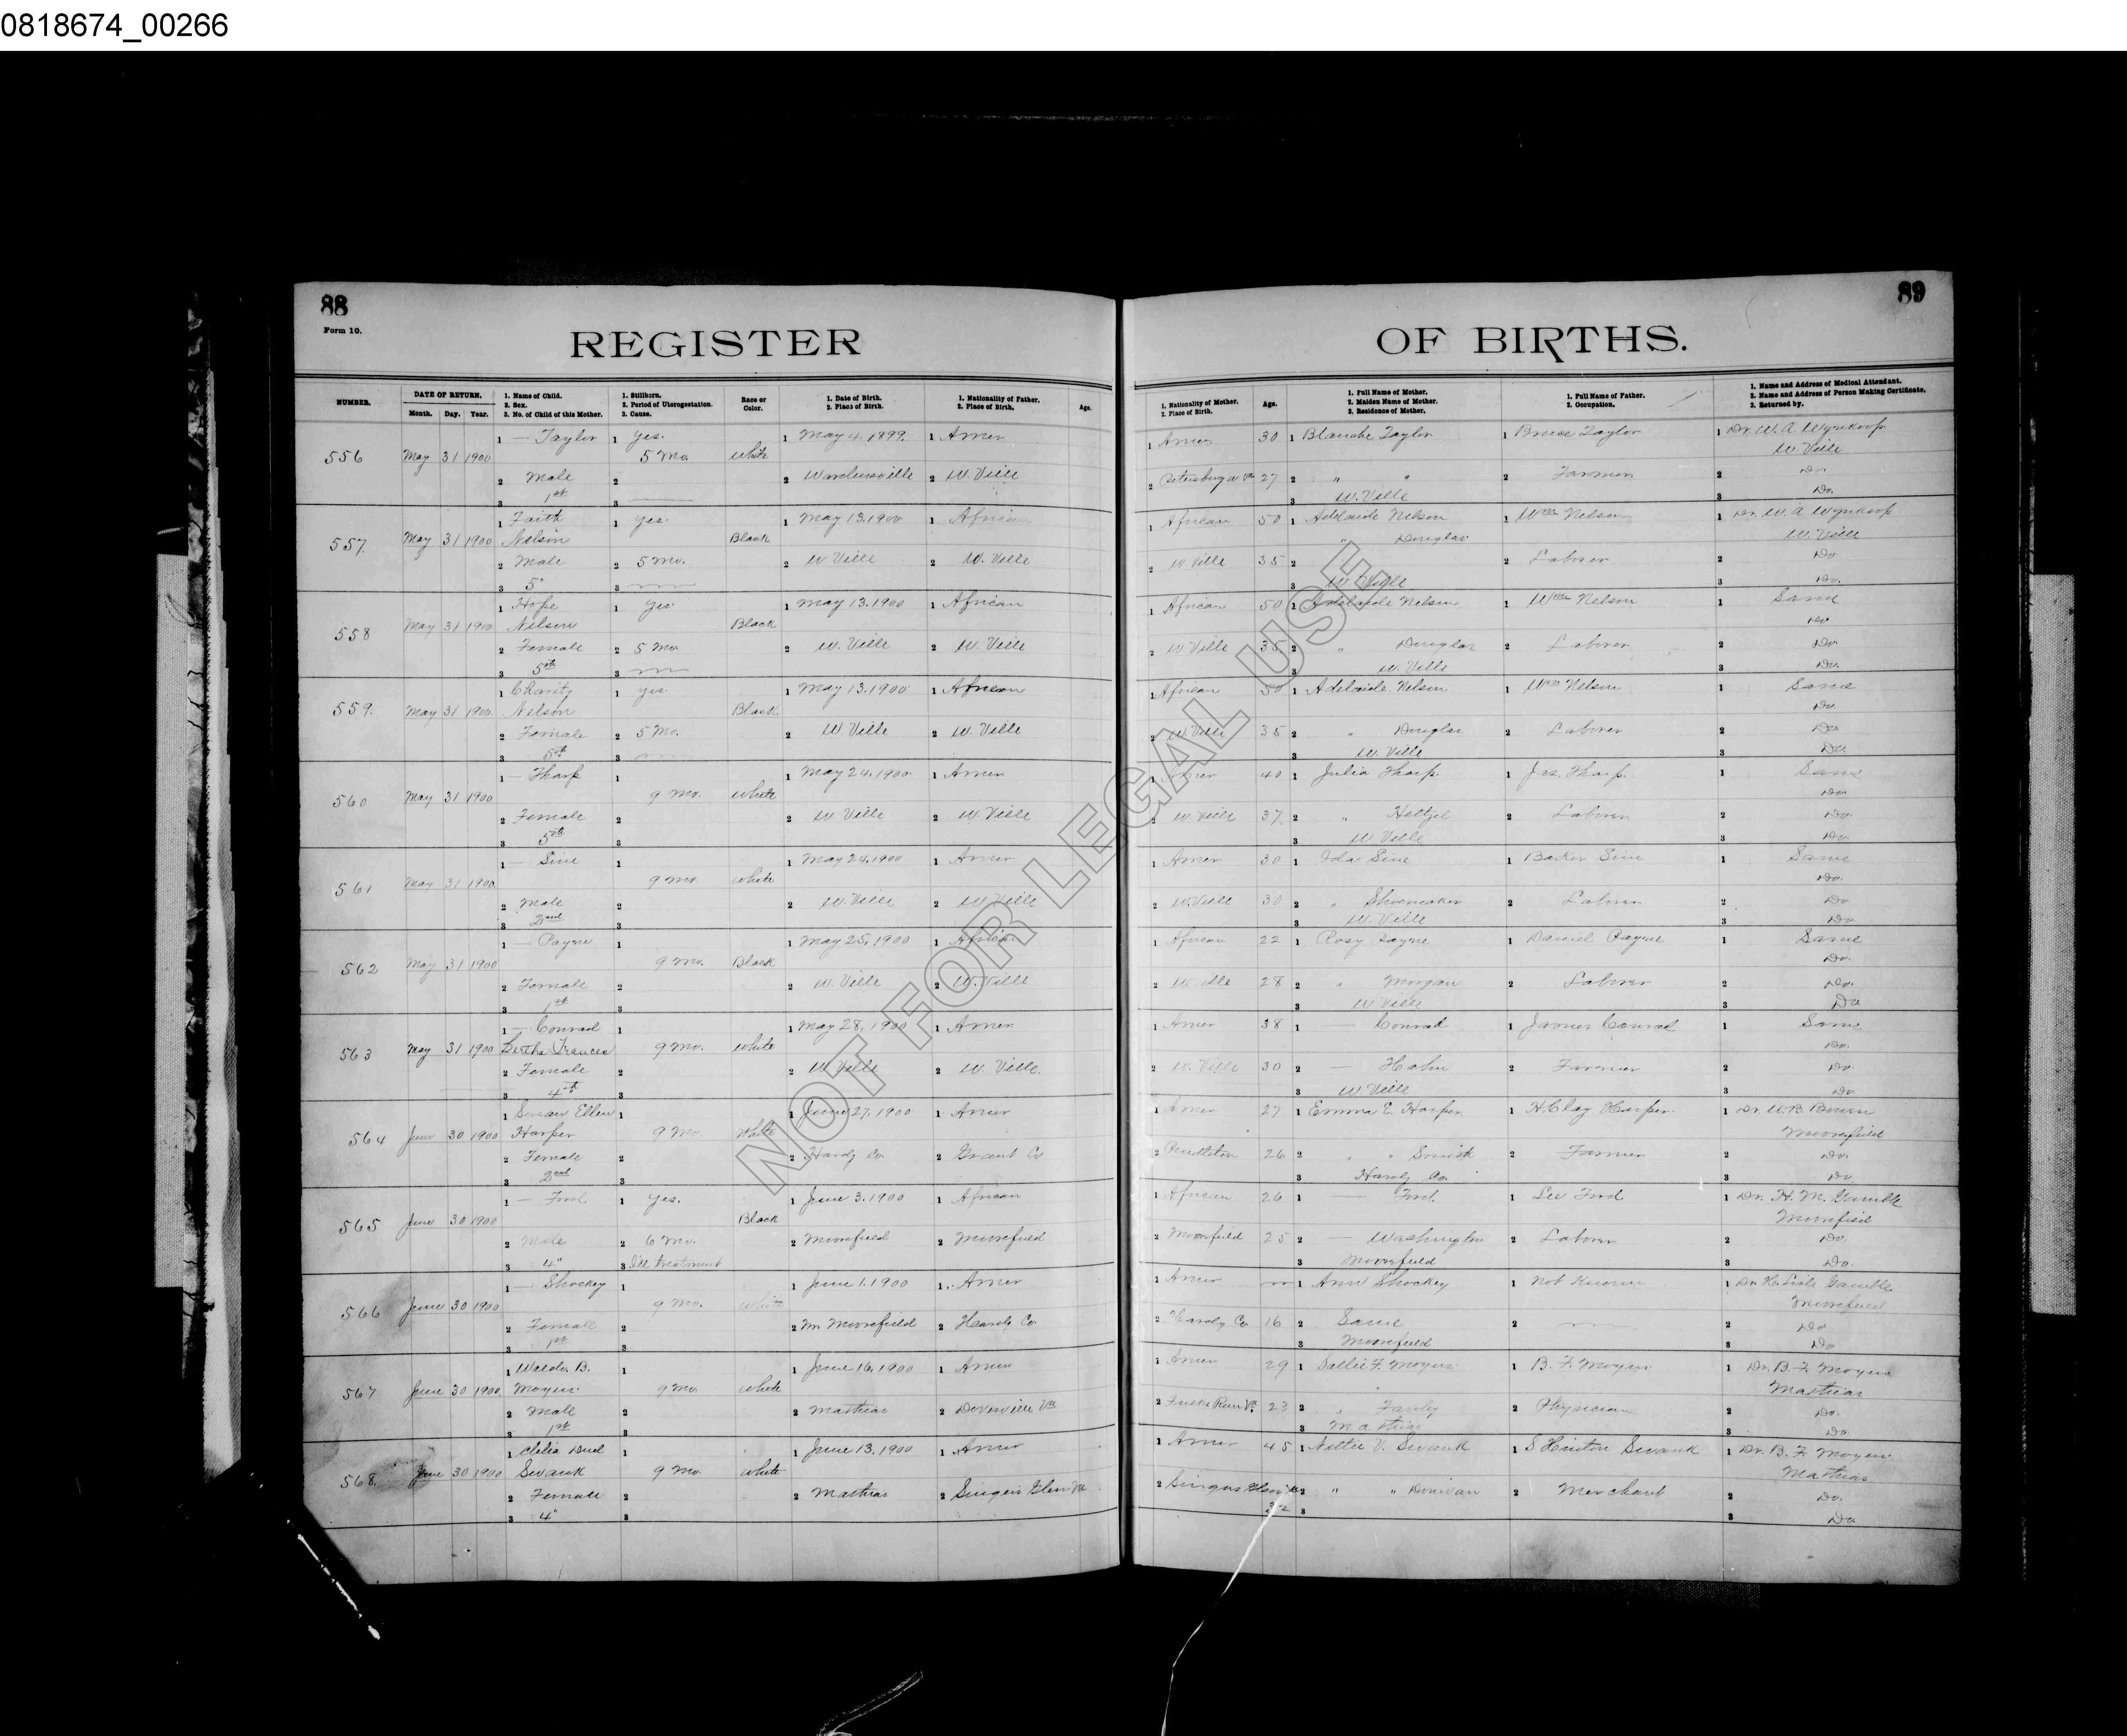 0818674_00266
88
Form 10.
REGISTER
OF BIRTHS.
89
NUMBER.
DATE OF RETURN.
Month. Day. Year.
1. Name of Child.
2. Sex.
3. No. of Child of this Mother.
1. Stillborn.
2. Period of Uterogestation.
3. Cause.
Race or Color.
1. Date of Birth.
2. Place of Birth.
1. Nationality of Father.
2. Place of Birth.
Age.
1. Nationality of Mother.
2. Place of Birth.
Age.
1. Full Name of Mother.
2. Maiden Name of Mother.
3. Residence of Mother.
1. Full Name of Father.
2. Occupation.
1. Name and Address of Medical Attendant.
2. Name and Address of Person Making Certificate.
3. Returned by.
1 — Taylor 1 Yes. 1 May 4. 1899. 1 Amer 1 Amer 30 1 Blanche Taylor 1 Bruce Taylor 1 Dr. W. A Wynkoop
556 May 31 1900 5 Mo. White W. Ville
2 Male 2 2 2 W. Ville 2 27 2 " " 2 Farmer 2 Do.
3 1st 3 3 W. Ville 3 Do.
1 Faith 1 Yes. 1 May 13. 1900 1 African 1 African 50 1 Adelaide Nelson 1 Wm Nelson 1 Dr. W. A Wynkoop
557. May 31 1900 Nelson Black " Douglas W. Ville
2 Male 2 5 Mo. 2 W Ville 2 W. Ville 2 W Ville 35 2 2 Laborer 2 Do
3 5" 3 3 W Ville 3 Do.
1 Hope 1 Yes. 1 May 13. 1900 1 African 1 African 50 1 Adelaide Nelson 1 Wm Nelson 1 Same
558 May 31 1900 Nelson Black Do
2 Female 2 5 Mo. 2 W. Ville 2 W. Ville 2 W Ville 35 2 " Douglas 2 Laborer 2 Do
3 5th 3 3 W. Ville 3 Do.
1 Charity 1 Yes 1 May 13. 1900 1 African 1 African 50 1 Adelaide Nelson 1 Wm Nelson 1 Same
559. May 31 1900. Nelson Black Do.
2 Female 2 5 Mo. 2 W Ville 2 W. Ville 2 W Ville 35 2 " Douglas 2 Laborer 2 Do
3 5th 3 3 W. Ville 3 Do.
1 — Tharp 1 1 May 24. 1900. 1 Amer 1 Amer 40 1 Julia Tharp. 1 Jas. Tharp. 1 Same
560 May 31 1900 9 Mo. White Do.
2 Female 2 2 W Ville 2 W. Ville 2 W. Ville 37 2 " Heltzel 2 Laborer 2 Do.
3 5th 3 3 W. Ville 3 Do
1 — Sine 1 1 May 24, 1900 1 Amer 1 Amer 30 1 Ida Sine 1 Barker Sine 1 Same
561 May 31 1900. 9 Mo White Do.
2 Male 2 2 W. Ville 2 W Ville 2 W. Ville 30 2 " Shoemaker 2 Laborer 2 Do
3 3 3 W. Ville 3 Do
1 — Payne 1 1 May 25, 1900 1 African 1 African 22 1 Rosy Payne 1 Daniel Payne 1 Same
562 May 31 1900 9 Mo. Black Do.
2 Female 2 2 W. Ville 2 W. Ville 2 W. Ville 28 2 " Morgan 2 Laborer 2 Do.
3 1st 3 3 W Ville 3 Do
1 — Conrad 1 1 May 28, 1900 1 Amer 1 Amer 38 1 — Conrad 1 James Conrad 1 Same
563 May 31 1900 Bertha Frances 9 Mo. White Do.
2 Female 2 2 W. Ville 2 W. Ville. 2 W. Ville 30 2 — Hahn 2 Farmer 2 Do
3 4th 3 3 W Ville 3 Do.
1 Susan Ellen 1 1 June 27, 1900 1 Amer 1 Amer 27 1 Emma E. Harper 1 H. Clay Harper. 1 Dr. W. B. Bowen
564 June 30 1900 Harper 9 Mo. White Moorefield
2 Female 2 2 Hardy Co. 2 Grant Co 2 Pendleton 26 2 " " 2 Farmer 2 Do.
3 2nd 3 3 Hardy Co. 3 Do.
1 — Ford 1 Yes. 1 June 3. 1900 1 African 1 African 26 1 — Ford. 1 Lee Ford 1 Dr. H. M. Gamble
565 June 30 1900 Black Moorefield
2 Male 2 6 Mo. 2 Moorefield 2 Moorefield 2 Moorefield 25 2 — Washington 2 Laborer 2 Do.
3 4" 3 Ill treatment 3 Moorefield 3 Do.
1 — Shockey 1 1 June 1. 1900 1 Amer 1 Amer 1 Ann Shockey 1 Not Known 1 Gamble
566 June 30 1900 9 Mo. White Moorefield
2 Female 2 2 Nr. Moorefield 2 Hardy Co 2 Hardy Co 16 2 Same 2 2 Do
3 1st 3 3 Moorefield 3 Do
1 Waldo. B. 1 1 June 16, 1900 1 Amer 1 Amer 29 1 Sallie F. Moyers 1 B. F. Moyers 1 Dr. B. F. Moyers
567 June 30 1900. Moyers. 9 Mo. White Mathias
2 Male 2 2 Mathias 2 Dovesville Va 2 23 2 " 2 Physician 2 Do.
3 1st 3 3 Mathias 3 Do
1 1 1 June 13, 1900 1 Amer 1 Amer 45 1 Nettie V. Swank 1 S Hinton Swank 1 Dr. B. F. Moyers
568. June 30 1900 Swank 9 Mo. White Mathias
2 Female 2 2 Mathias 2 Singers Glen Va 2 Singers Glen Va 2 " " Donivan 2 Merchant 2 Do.
3 4" 3 32 3 3 Do
NOT FOR LEGAL USE